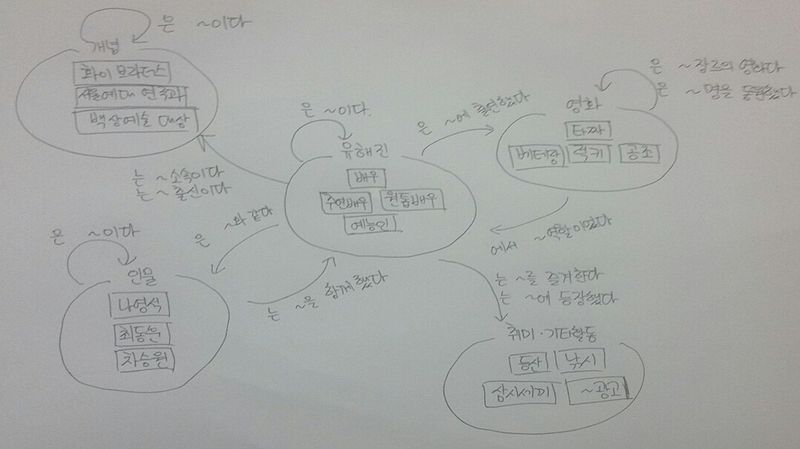 은 ~이다
개념
화이브라더스
서울예대 연극과
백상예술 대상
는 ~소속이다
는 ~출신이다
은 ~이다.
유해진
배우
주연배우 원톱배우
예능인
은 ~에 출연했다
은 ~장르의 영화다
은 ~명을 동원했다
영화
타짜
베테랑 럭키 공조
에서 ~역할이었다
은 ~와 같다
은 ~이다
인물
나영석
최동훈
차승원
는 ~을 함께했다
는 ~를 즐겨한다
는 ~에 등장했다
취미·기타활동
등산 낚시
삼시세끼 ~광고